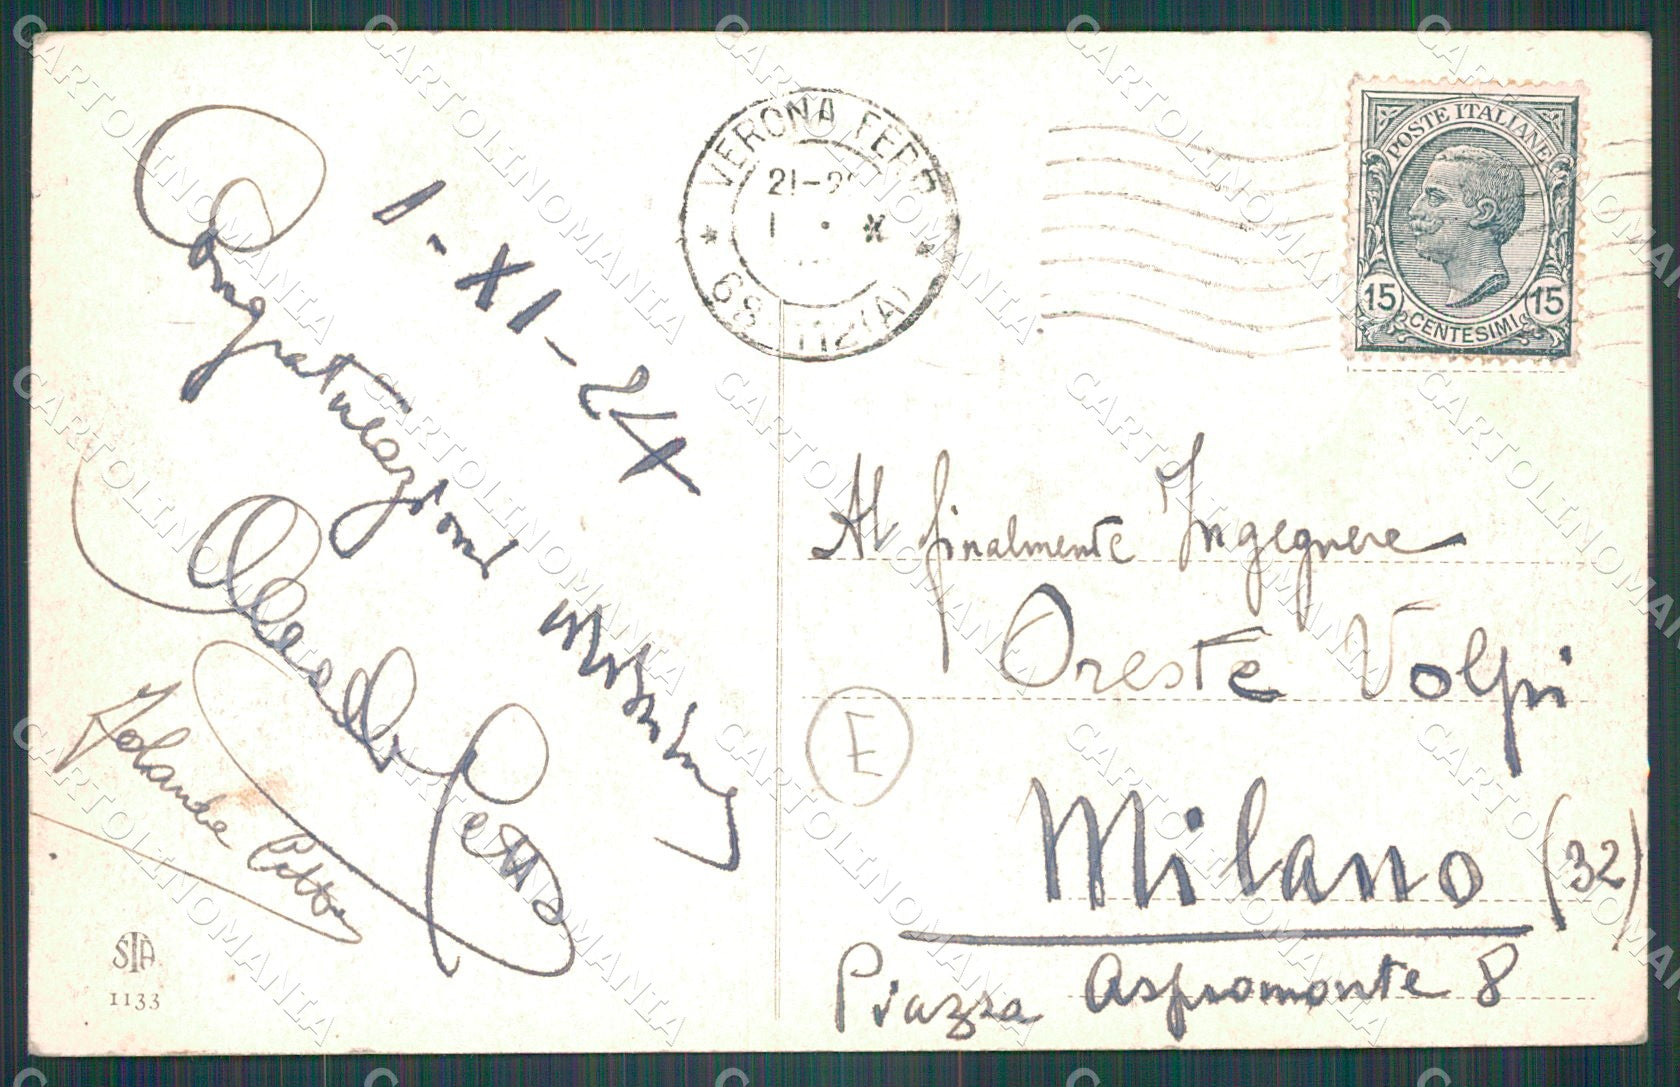 1-XI-24
Congratulazioni
Jolanda
STA
1133
VERONA FERR
21-2
1 · X
68 · 112(A)
POSTE ITALIANE
15 15
CENTESIMI
Al finalmente Ingegnere
Oreste Volpi
E
Milano (32)
Piazza Aspromonte 8
CARTOLINOMANIA